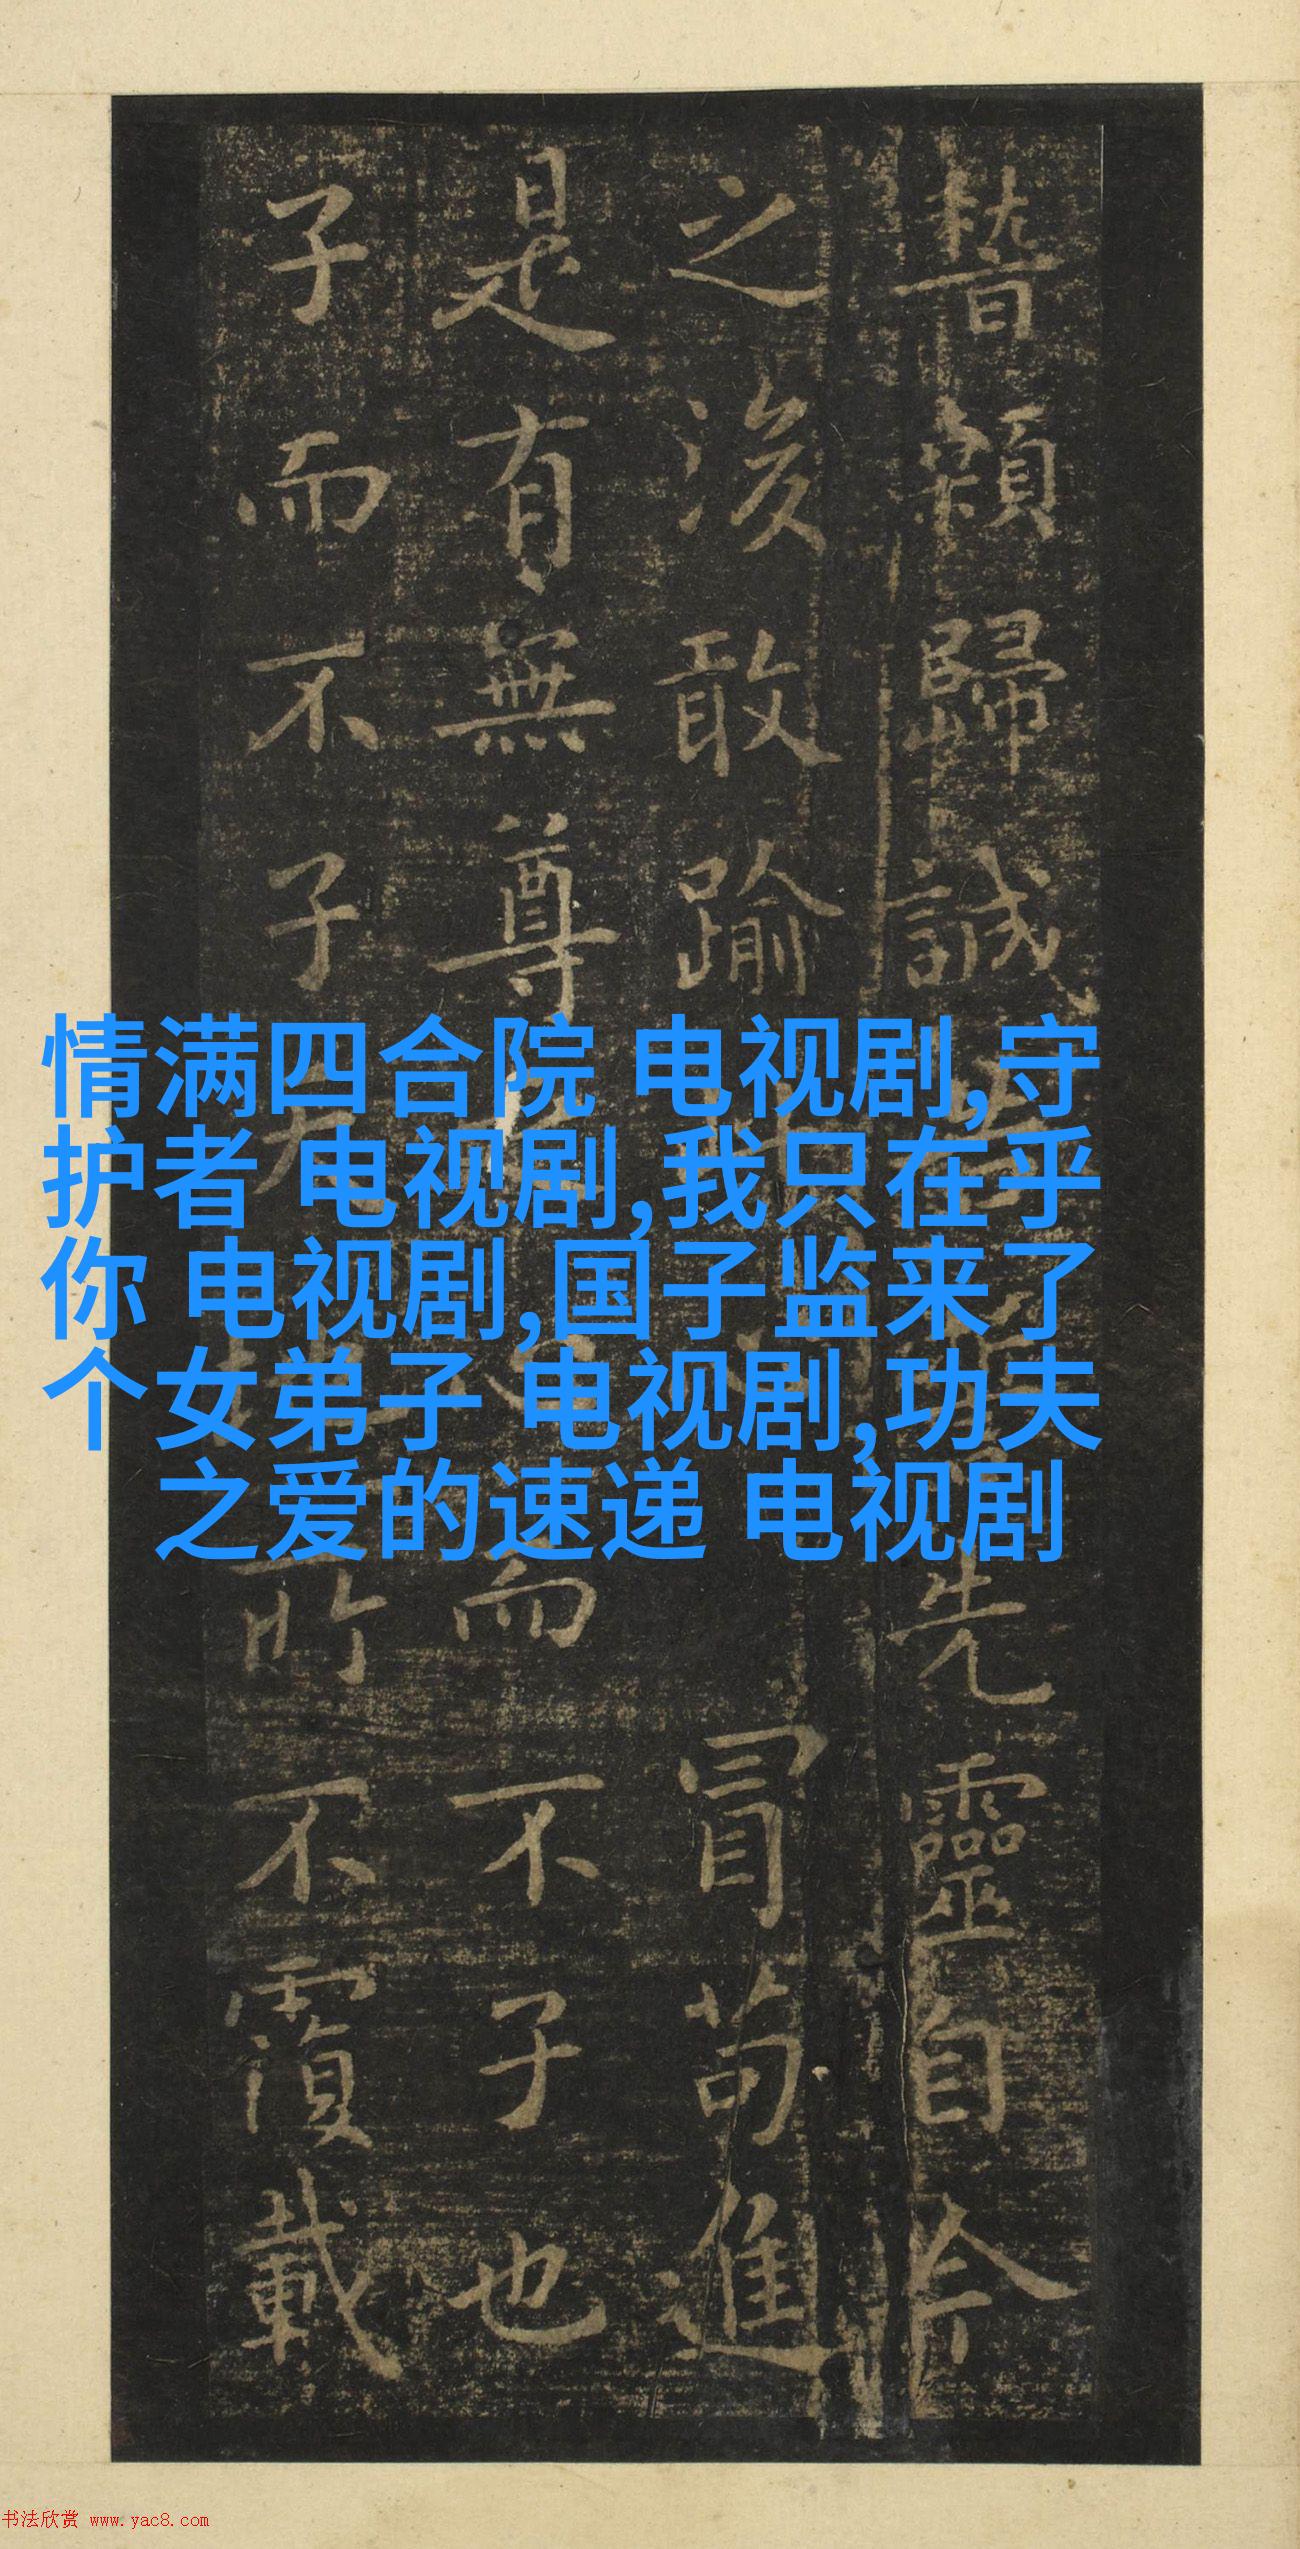 情满四合院 电视剧,守
护者 电视剧,我只在乎
你 电视剧,国子监来了
个女弟子 电视剧,功夫
之爱的速递 电视剧
顙歸誠
先靈自今
之後敢踰
冒苟進
是有無尊
而不子也
子而不子
所不覆載
书法欣赏 www.yac8.com